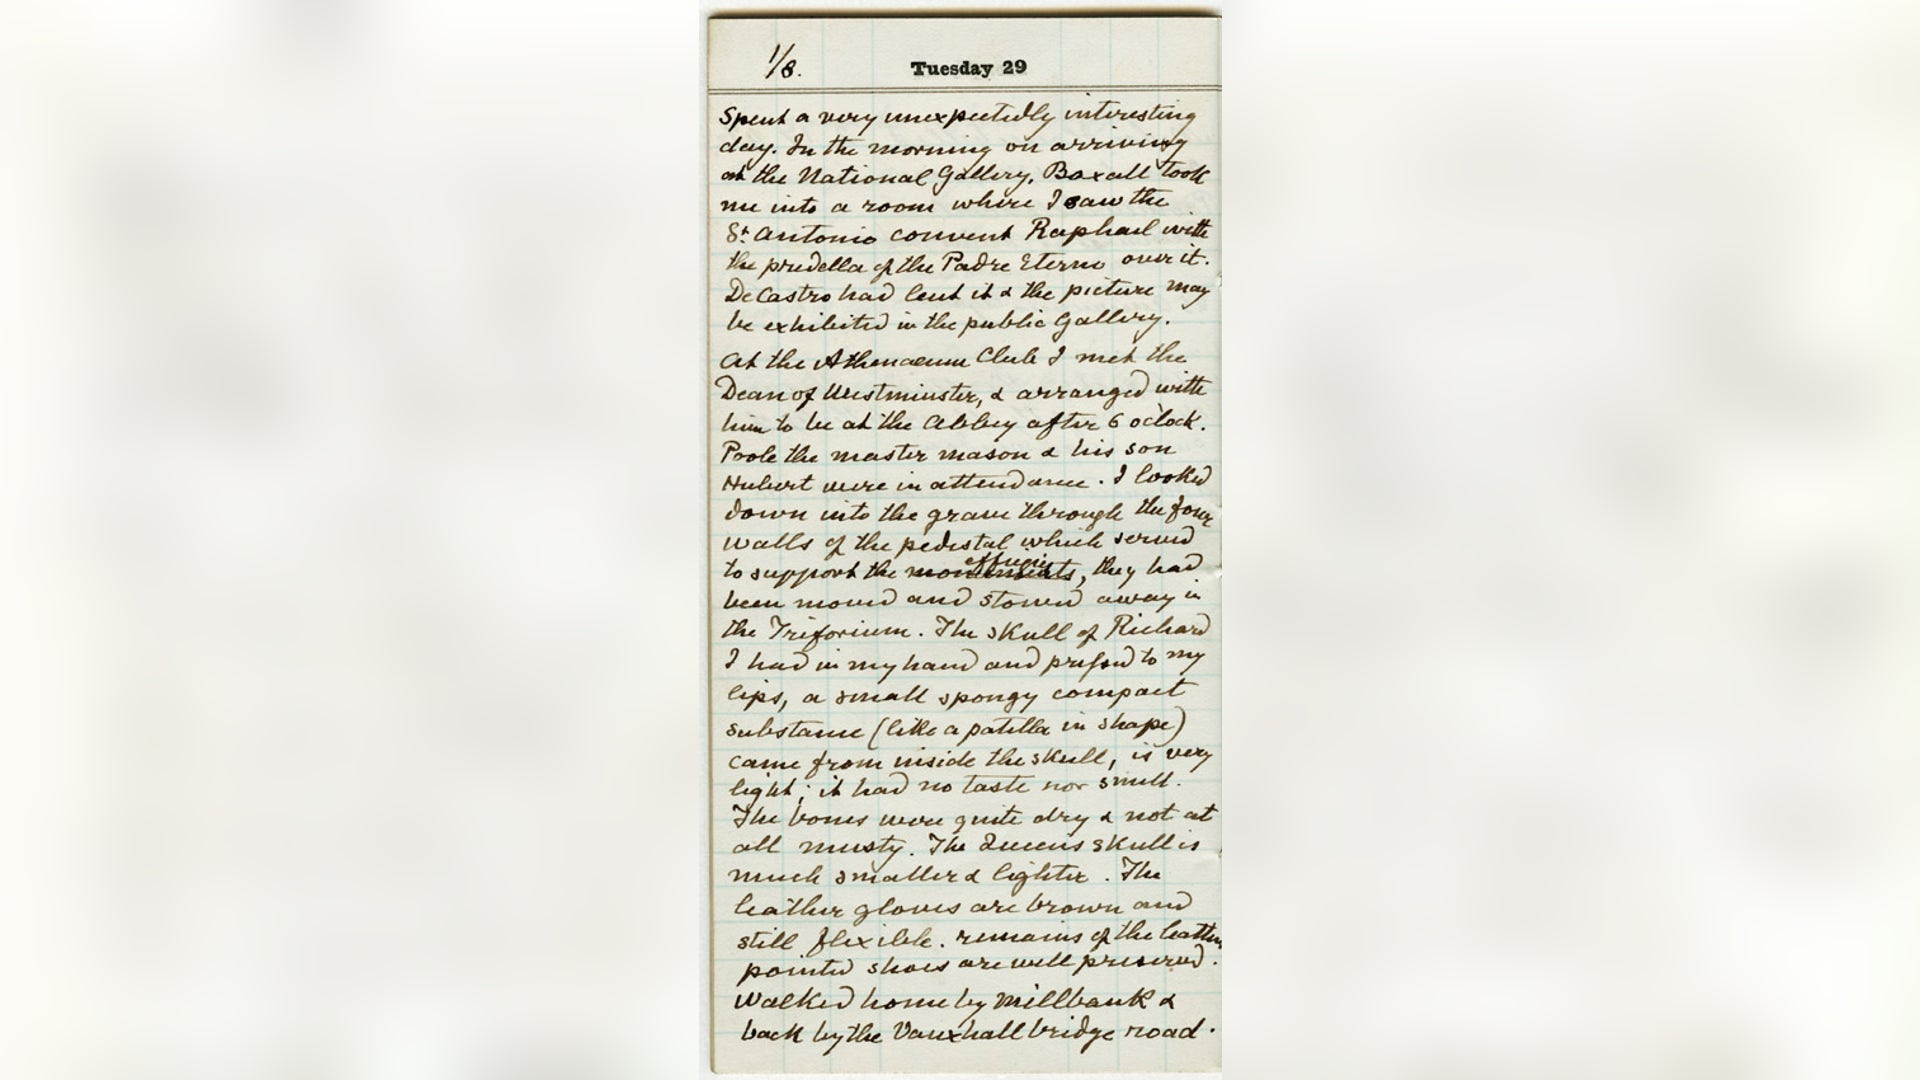 1/8.
Tuesday 29
Spent a very unexpectedly interesting
day. In the morning on arriving
at the National Gallery, Boxall took
me into a room where I saw the
St. Antonio convent Raphael with
the predella of the Padre Eterno over it.
De Castro had lent it & the picture may
be exhibited in the public Gallery.
At the Athenaeum Club I met the
Dean of Westminster, & arranged with
him to be at the Abbey after 6 oclock.
Poole the master mason & his son
Hubert were in attendance. I looked
down into the grave through the four
walls of the pedestal which served
effigies
to support the monuments, they had
been moved and stowed away in
the Triforium. The skull of Richard
I had in my hand and pressed to my
lips, a small spongy compact
substance (like a patella in shape)
came from inside the skull, is very
light; it had no taste nor smell.
The bones were quite dry & not at
all musty. The Queens skull is
much smaller & lighter. The
leather gloves are brown and
still flexible. remains of the leather
pointed shoes are well preserved.
Walked home by Millbank &
back by the Vauxhall bridge road.